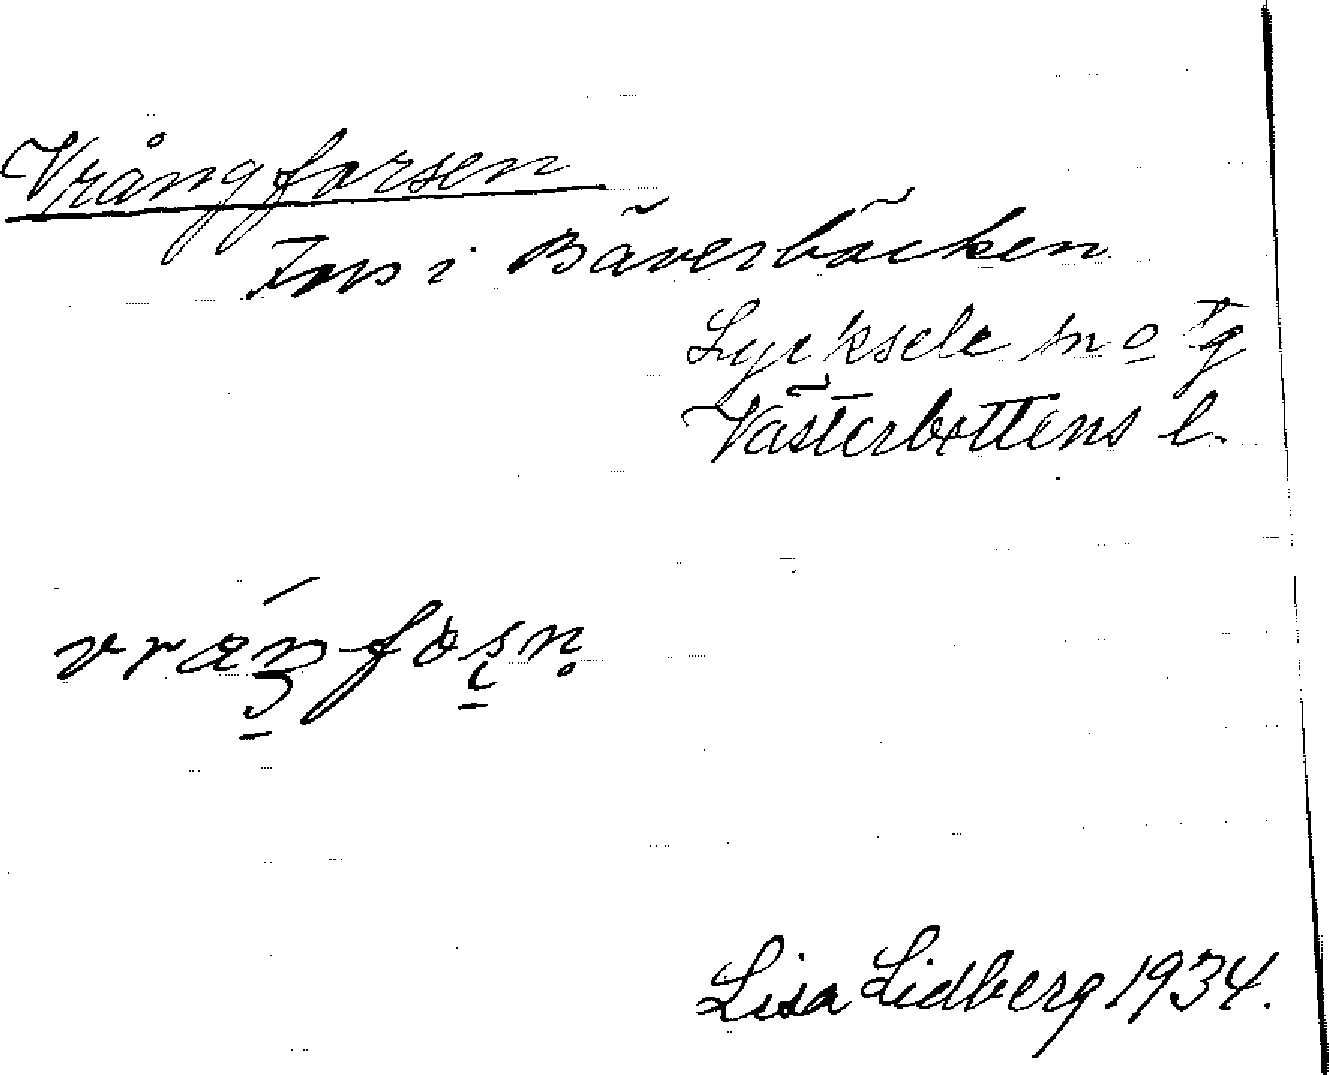 Vrångforsen
Fors i Bäverbäcken
Lycksele sn o tg
Västerbottens l.
Lisa Lidberg 1934.